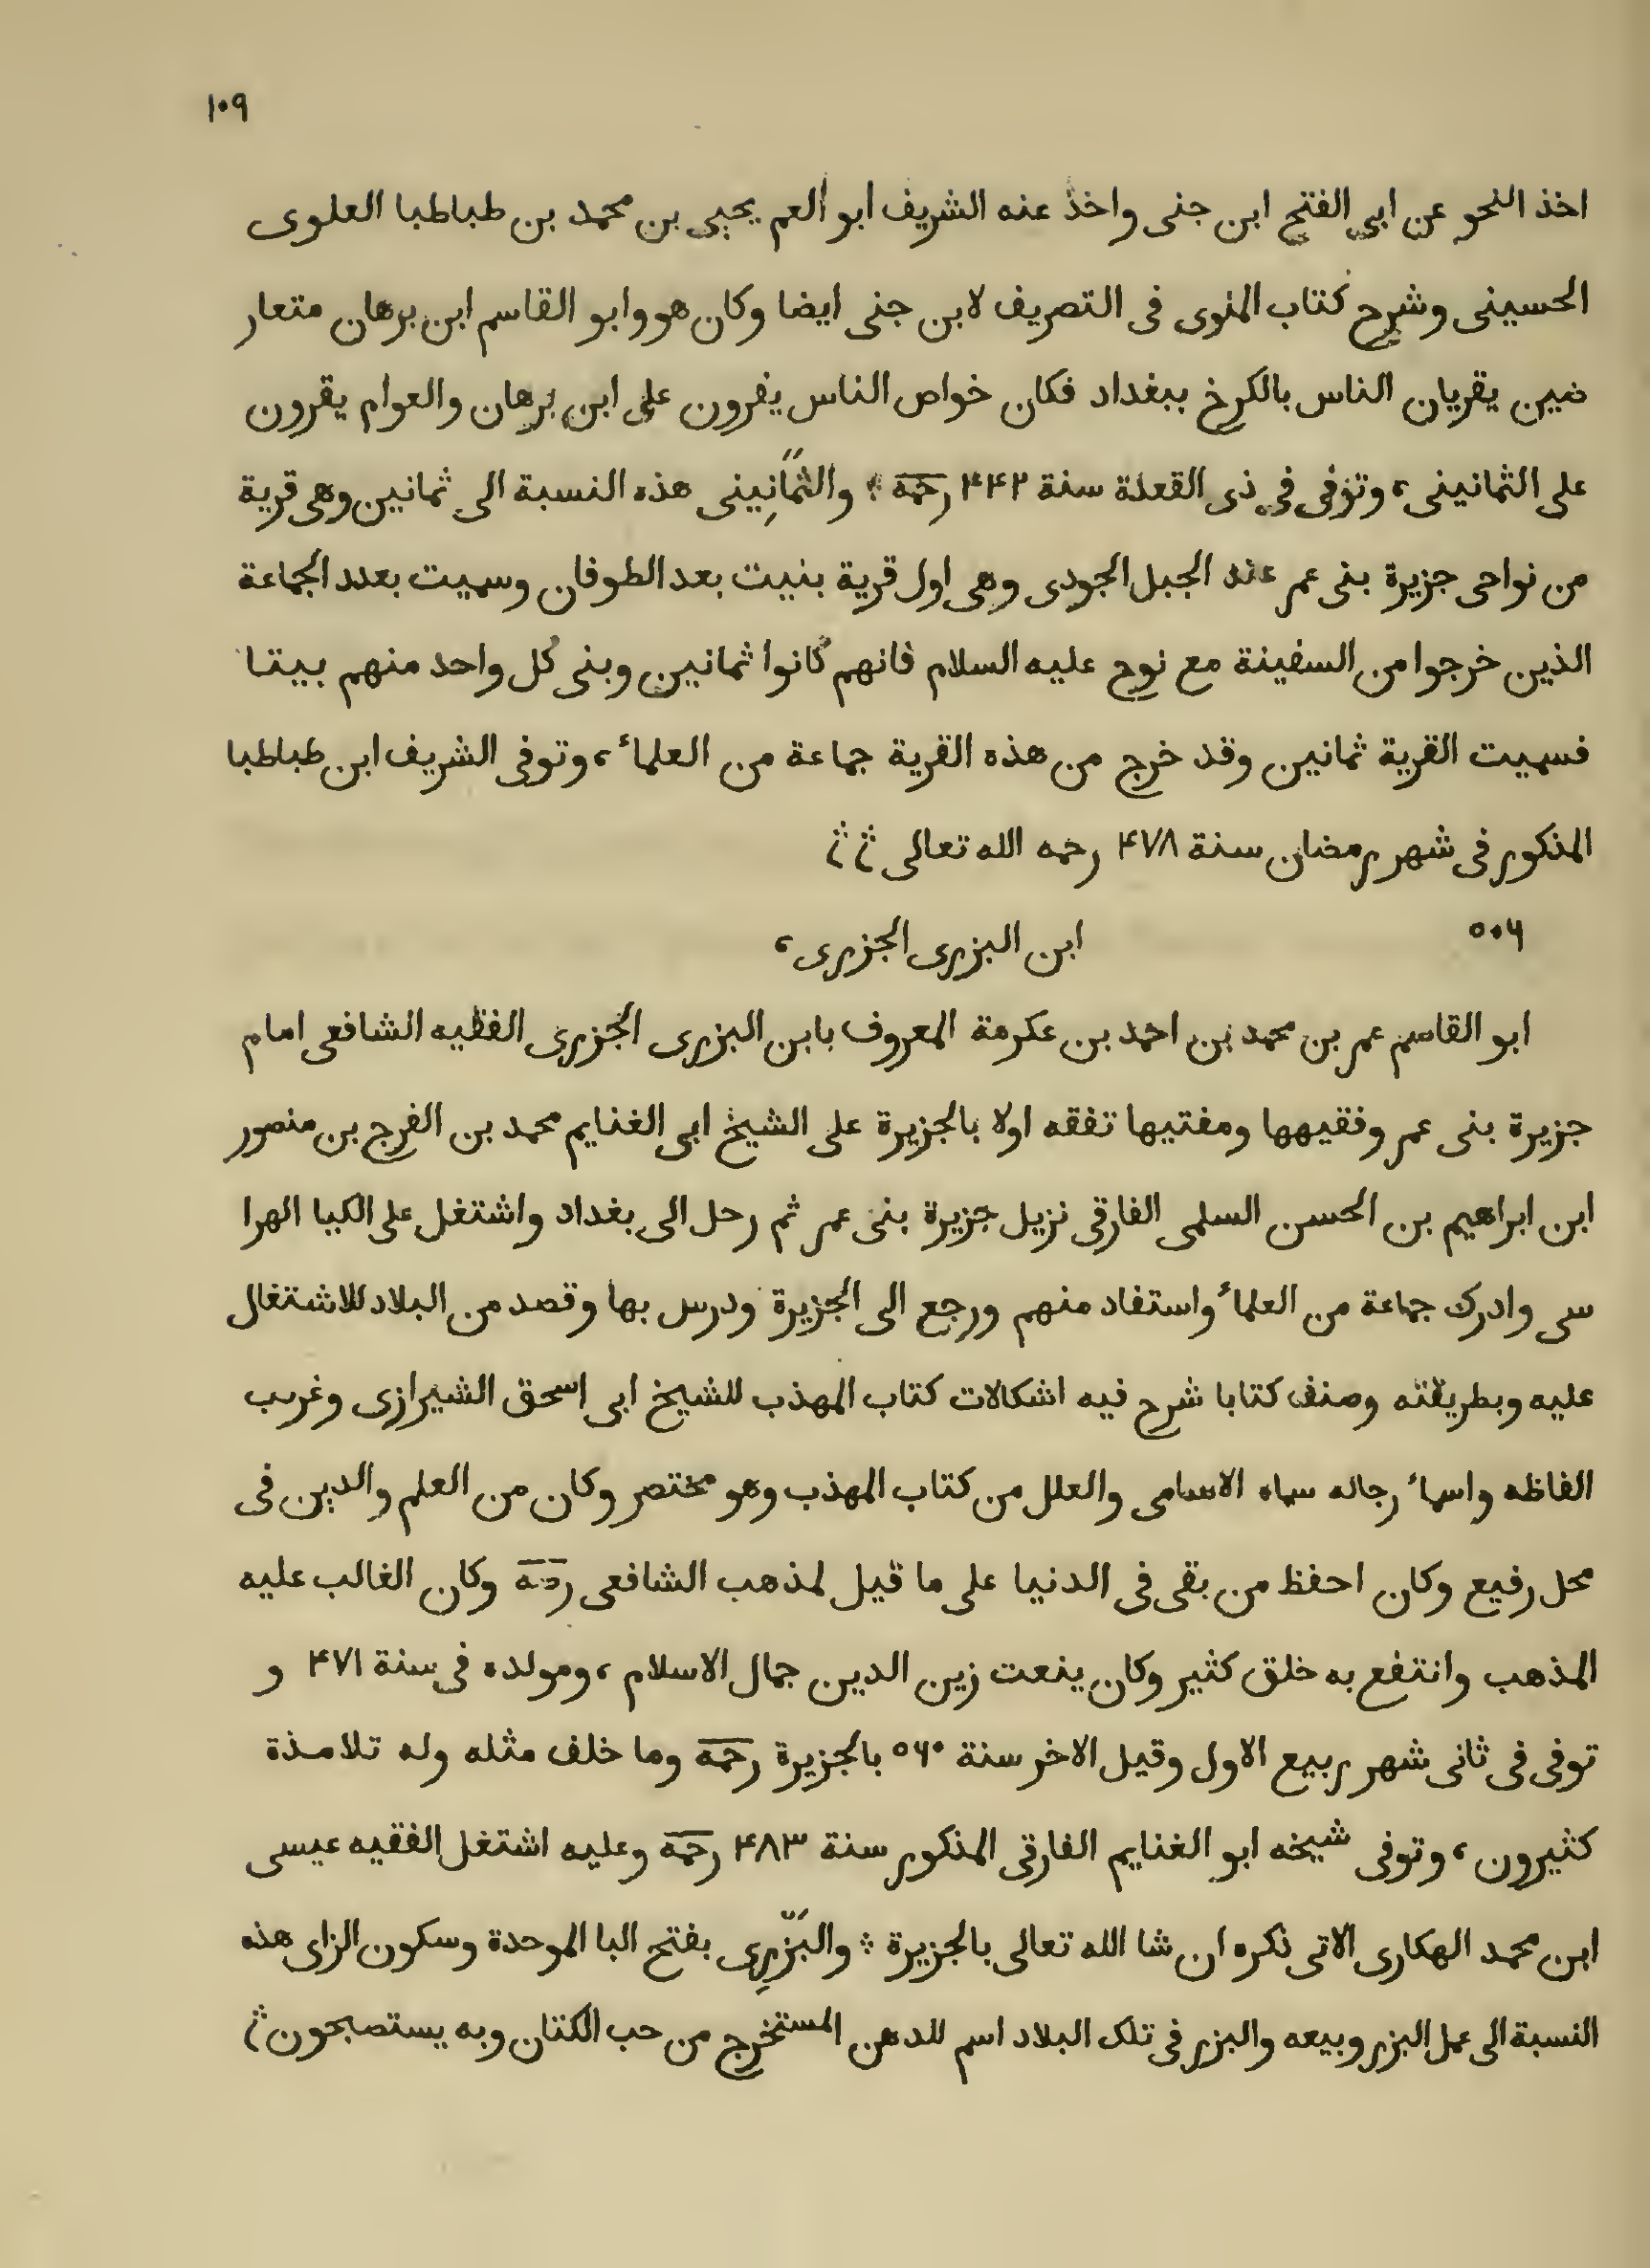 ١٠٩
اخذ النحو عن ابى الفتح ابن جنى واخذ عنه الشريف ابو العم يحيى بن محمد بن طباطبا العلوى
الحسينى وشرح كتاب الملوى فى التصريف لابن جنى ايضا وكان هو وابو القاسم ابن برهان متعار
ضين يقريان الناس بالكرخ ببغداد فكان خواص الناس يقرون على ابن برهان والعوام يقرون
على الثمانينى، وتوفى فى ذى القعدة سنة ۴۴۲ رحمه ؛ والثَمَانِينى هذه النسبة الى ثمانين وهى قرية
من نواحى جزيرة بنى عمر عند الجبل الجودى وهى اول قرية بنيت بعد الطوفان وسميت بعدد الجماعة
الذين خرجوا من السفينة مع نوح عليه السلام فانهم كانوا ثمانين وبنى كل واحد منهم بيتا
فسميت القرية ثمانين وقد خرج من هذه القرية جماعة من العلماء، وتوفى الشريف ابن طباطبا
المذكور فى شهر رمضان سنة ۴٧٨ رحمه الله تعالى
٥٠٦ ابن البزرى الجزرى،
ابو القاسم عمر بن محمد بن احمد بن عكرمة المعروف بابن البزرى الجزرى الفقيه الشافعى امام
جزيرة بنى عمر وفقيهها ومفتيها تفقه اولا بالجزيرة على الشيخ ابى الغنايم محمد بن الفرج بن منصور
ابن ابراهيم بن الحسن السلمى الفارقى نزيل جزيرة بنى عمر ثم رحل الى بغداد واشتغل على الكيا الهرا
سى وادرك جماعة من العلماء واستفاد منهم ورجع الى الجزيرة ودرس بها وقصد من البلاد للاشتغال
عليه وبطريقته وصنف كتابا شرح فيه اشكالات كتاب المهذب للشيخ ابى اسحق الشيرازى وغريب
الفاظه واسماء رجاله سماه الاسامى والعلل من كتاب المهذب وهو مختصر وكان من العلم والدين فى
محل رفيع وكان احفظ من بقى فى الدنيا على ما قيل لمذهب الشافعى رضه وكان الغالب عليه
المذهب وانتفع به خلق كثير وكان ينعت زين الدين جمال الاسلام، ومولده فى سنة ۴٧١ و
توفى فى ثانى شهر ربيع الاول وقيل الاخر سنة ٥٦٠ بالجزيرة رحمه وما خلف مثله وله تلامذة
كثيرون، وتوفى شيخه ابو الغنايم الفارقى المذكور سنة ۴٨٣ رحمه وعليه اشتغل الفقيه عيسى
ابن محمد الهكارى الاتى ذكره ان شا الله تعالى بالجزيرة ؛ والبَزْرِى بفتح البا الموحدة وسكون الزاى هذه
النسبة الى عمل البزر وبيعه والبزر فى تلك البلاد اسم للدهن المستخرج من حب الكتان وبه يستصبحون